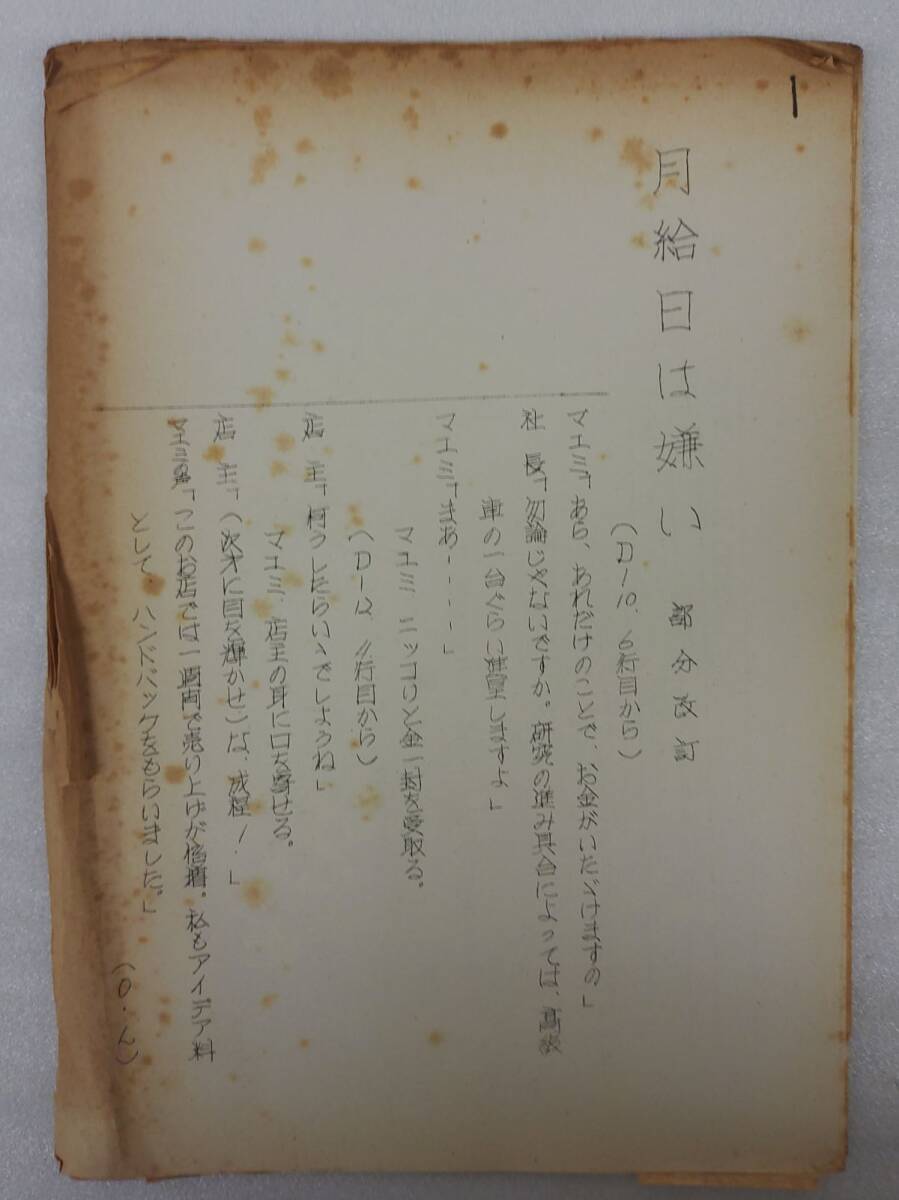 1
月給日は嫌い　部分改訂
(D-10、6行目から)
マエミ「あら、あれだけのことで、お金がいたゞけますの」
社　長「勿論じゃないですか。研究の進み具合によっては、高級
車の一台ぐらい進呈しますよ」
マエミ「まあ----」
マエミ　ニッコリと金一封を受取る。
(D-12、11行目から)
店　主「何うしたらいゝでしょうね」
マエミ、店主の耳に口を寄せる。
店　主「(次第に目を輝かせ)な、成程!」
マエミ声「このお店では一週間で売り上げが倍増。私もアイデア料
として、ハンドバックをもらいました。」
(O・L)